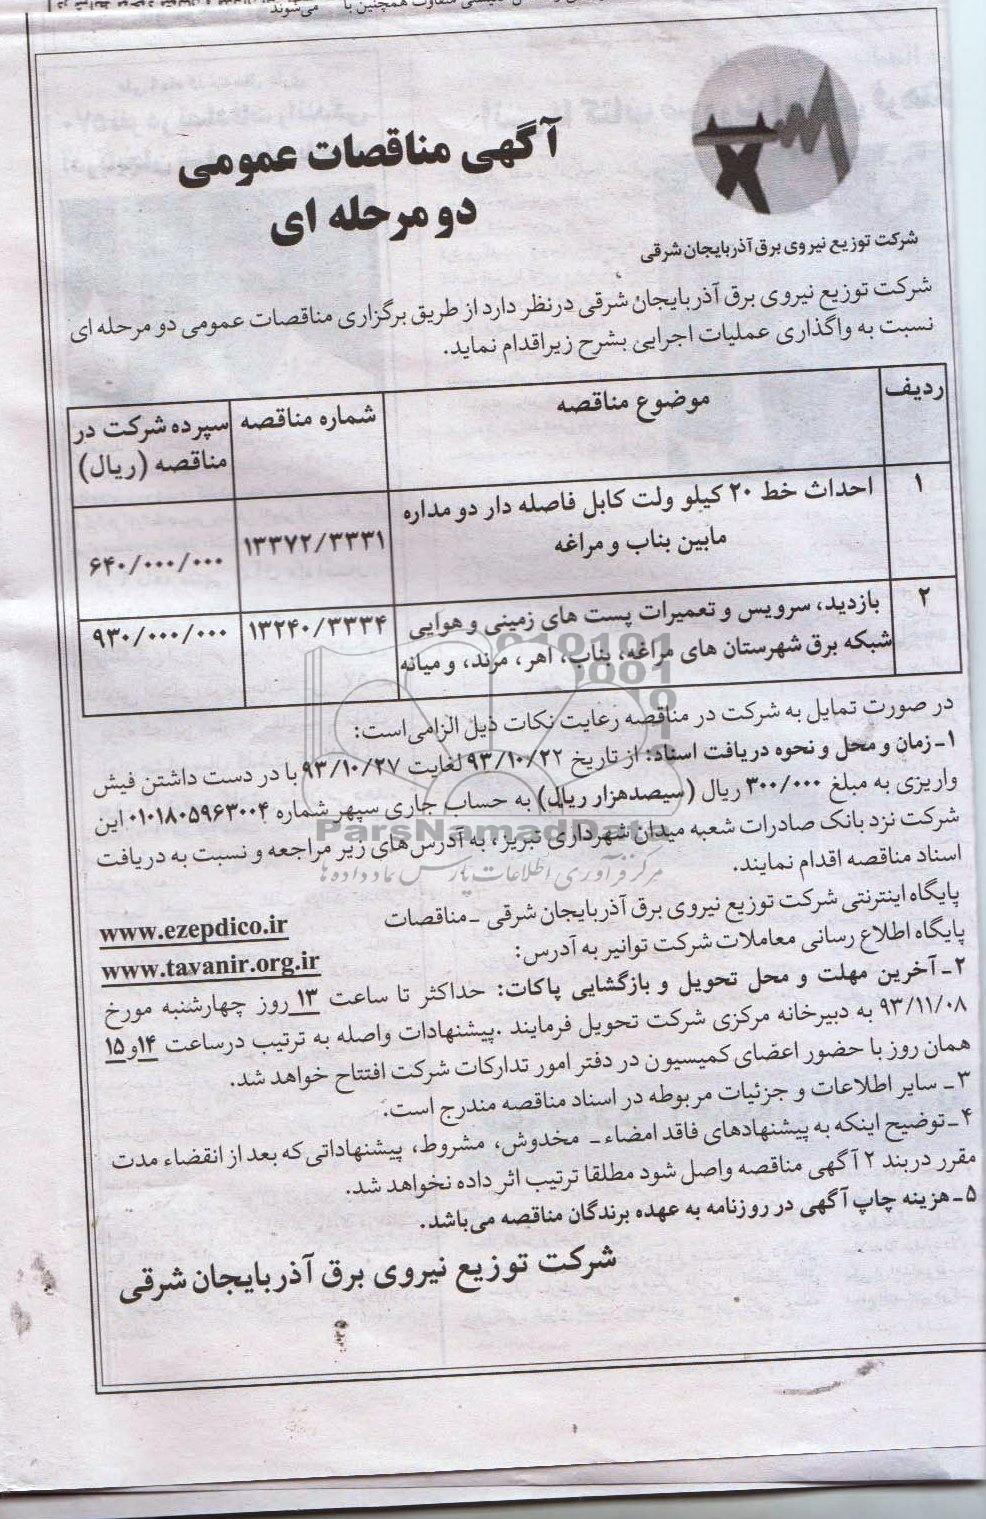 آگهی مناقصات عمومی
دو مرحله ای
شرکت توزیع نیروی برق آذربایجان شرقی
شرکت توزیع نیروی برق آذربایجان شرقی درنظر دارد از طریق برگزاری مناقصات عمومی دو مرحله ای
نسبت به واگذاری عملیات اجرایی بشرح زیراقدام نماید.
ردیف	موضوع مناقصه	شماره مناقصه	سپرده شرکت در مناقصه (ریال)
۱	احداث خط ۲۰ کیلو ولت کابل فاصله دار دو مداره مابین بناب و مراغه	۱۳۳۷۲/۳۳۳۱	۶۴۰/۰۰۰/۰۰۰
۲	بازدید، سرویس و تعمیرات پست های زمینی و هوایی شبکه برق شهرستان های مراغه، بناب، اهر، مرند، و میانه	۱۳۲۴۰/۳۳۳۴	۹۳۰/۰۰۰/۰۰۰
در صورت تمایل به شرکت در مناقصه رعایت نکات ذیل الزامی‌است:
۱ـ زمان و محل و نحوه دریافت اسناد: از تاریخ ۹۳/۱۰/۲۲ لغایت ۹۳/۱۰/۲۷ با در دست داشتن فیش
واریزی به مبلغ ۳۰۰/۰۰۰ ریال (سیصدهزار ریال) به حساب جاری سپهر شماره ۰۱۰۱۸۰۵۹۶۳۰۰۴ این
شرکت نزد بانک صادرات شعبه میدان شهرداری تبریز، به آدرس‌های زیر مراجعه و نسبت به دریافت
اسناد مناقصه اقدام نمایند.
پایگاه اینترنتی شرکت توزیع نیروی برق آذربایجان شرقی ـ مناقصات www.ezepdico.ir
پایگاه اطلاع رسانی معاملات شرکت توانیر به آدرس: www.tavanir.org.ir
۲ـ آخرین مهلت و محل تحویل و بازگشایی پاکات: حداکثر تا ساعت ۱۳ روز چهارشنبه مورخ
۹۳/۱۱/۰۸ به دبیرخانه مرکزی شرکت تحویل فرمایند .پیشنهادات واصله به ترتیب درساعت ۱۴و۱۵
همان روز با حضور اعضای کمیسیون در دفتر امور تدارکات شرکت افتتاح خواهد شد.
۳ـ سایر اطلاعات و جزئیات مربوطه در اسناد مناقصه مندرج است.
۴ـ توضیح اینکه به پیشنهادهای فاقد امضاء ـ مخدوش، مشروط، پیشنهاداتی که بعد از انقضاء مدت
مقرر دربند ۲ آگهی مناقصه واصل شود مطلقا ترتیب اثر داده نخواهد شد.
۵ـ هزینه چاپ آگهی در روزنامه به عهده برندگان مناقصه می‌باشد.
شرکت توزیع نیروی برق آذربایجان شرقی
ParsNamadData
مرکز فرآوری اطلاعات پارس نماد داده ها